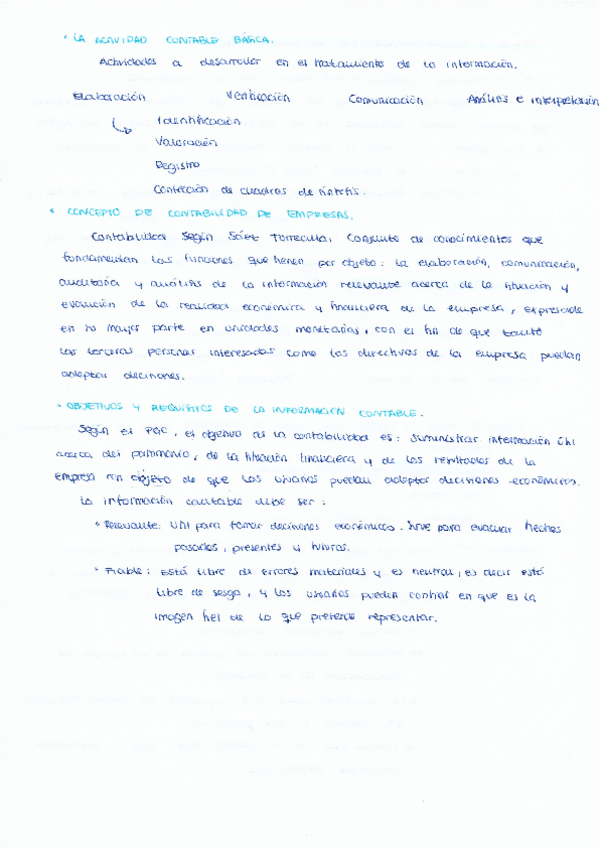 • LA ACTIVIDAD CONTABLE BÁSICA.
Actividades a desarrollar en el tratamiento de la información.
Elaboración Verificación Comunicación Análisis e interpretación
↳ Identificación
Valoración
Registro
Confección de cuadros de síntesis.
• CONCEPTO DE CONTABILIDAD DE EMPRESAS.
Contabilidad según Sáez Torrecilla: Conjunto de conocimientos que
fundamentan las funciones que tienen por objeto: la elaboración, comunicación,
auditoría y análisis de la información relevante acerca de la situación y
evolución de la realidad económica y financiera de la empresa, expresable
en su mayor parte en unidades monetarias, con el fin de que tanto
las terceras personas interesadas como los directivos de la empresa puedan
adoptar decisiones.
• OBJETIVOS Y REQUISITOS DE LA INFORMACIÓN CONTABLE.
Según el PGC, el objetivo de la contabilidad es: suministrar información útil
acerca del patrimonio, de la situación financiera y de los resultados de la
empresa con objeto de que los usuarios puedan adoptar decisiones económicas.
La información contable debe ser:
• Relevante: útil para tomar decisiones económicas. Sirve para evaluar hechos
pasados, presentes y futuros.
• Fiable: Está libre de errores materiales y es neutral, es decir está
libre de sesgo, y los usuarios pueden confiar en que es la
imagen fiel de lo que pretende representar.